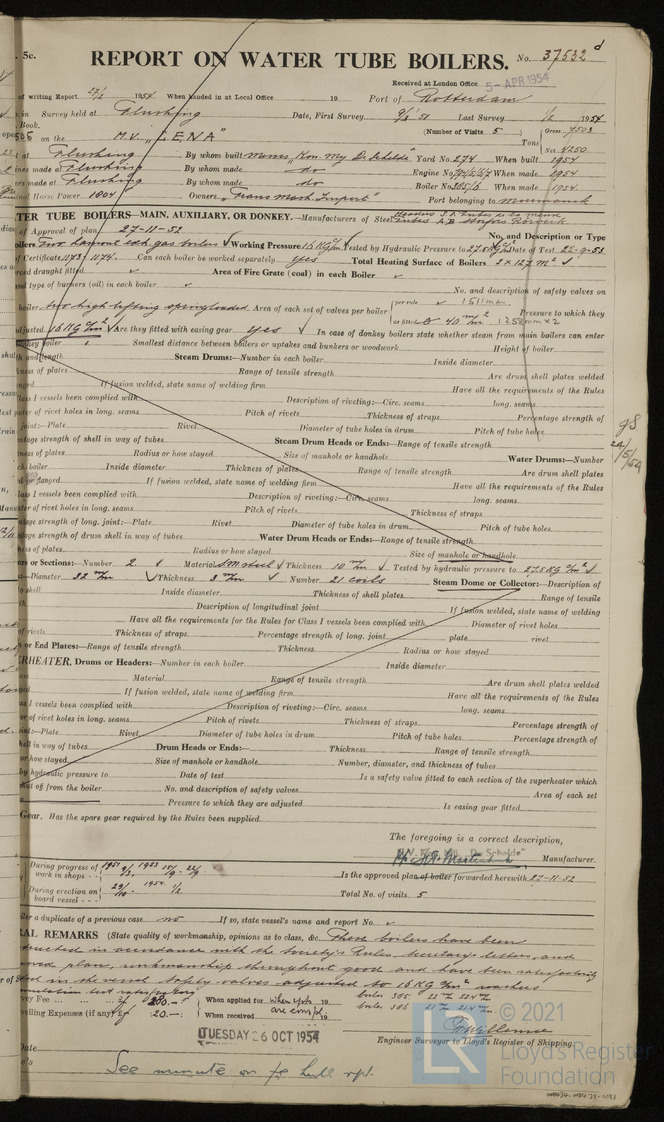 5c.
REPORT ON WATER TUBE BOILERS. No. 37532 d
Received at London Office 5- APR 1954
of writing Report 1954 When handed in at Local Office 19 Port of Rotterdam
in Survey held at Flushing Date, First Survey Last Survey 1/2 1954
Book.
on the M.V. "LENA" (Number of Visits 5) Tons Gross 7503 Net 4250
at Flushing By whom built Messrs "Kon. My De Schelde" Yard No. 274 When built 1954
made at Flushing By whom made do Engine No. When made 1954
made at Flushing By whom made do Boiler No. When made 1954.
Horse Power 1004 Owners Port belonging to
TER TUBE BOILERS—MAIN, AUXILIARY, OR DONKEY.—Manufacturers of Steel
of Approval of plan 27-11-52 No. and Description or Type
Two Lamont exh gas boilers Working Pressure Tested by Hydraulic Pressure to Date of Test 22-9-53
of Certificate 1173 1174. Can each boiler be worked separately yes Total Heating Surface of Boilers 2 x 127 m²
ced draught fitted Area of Fire Grate (coal) in each Boiler
nd type of burners (oil) in each boiler No. and description of safety valves on
boiler two high lifting springloaded Area of each set of valves per boiler per rule as fitted Pressure to which they
adjusted 16 KG/cm² Are they fitted with easing gear yes In case of donkey boilers state whether steam from main boilers can enter
donkey boiler Smallest distance between boilers or uptakes and bunkers or woodwork Height of boiler
and length Steam Drums:—Number in each boiler Inside diameter
ness of plates Range of tensile strength Are drum shell plates welded
nged If fusion welded, state name of welding firm Have all the requirements of the Rules
lass I vessels been complied with Description of riveting:—Circ. seams long. seams
eter of rivet holes in long. seams Pitch of rivets Thickness of straps Percentage strength of
joint:—Plate Rivet Diameter of tube holes in drum Pitch of tube holes
ntage strength of shell in way of tubes Steam Drum Heads or Ends:—Range of tensile strength
ness of plates Radius or how stayed Size of manhole or handhole Water Drums:—Number
ch boiler Inside diameter Thickness of plates Range of tensile strength Are drum shell plates
d or flanged If fusion welded, state name of welding firm Have all the requirements of the Rules
lass I vessels been complied with Description of riveting:—Circ. seams long. seams
eter of rivet holes in long. seams Pitch of rivets Thickness of straps
ntage strength of long. joint:—Plate Rivet Diameter of tube holes in drum Pitch of tube holes
ntage strength of drum shell in way of tubes Water Drum Heads or Ends:—Range of tensile strength
ness of plates Radius or how stayed Size of manhole or handhole
rs or Sections:—Number 2 Material S.M. steel Thickness 10 m/m Tested by hydraulic pressure to 27.5 KG/cm²
Diameter 32 m/m Thickness 3 m/m Number 21 coils Steam Dome or Collector:—Description of
shell Inside diameter Thickness of shell plates Range of tensile
Description of longitudinal joint If fusion welded, state name of welding
Have all the requirements for the Rules for Class I vessels been complied with Diameter of rivet holes
of rivets Thickness of straps Percentage strength of long. joint plate rivet
or End Plates:—Range of tensile strength Thickness Radius or how stayed
RHEATER. Drums or Headers:—Number in each boiler Inside diameter
Material Range of tensile strength Are drum shell plates welded
ged If fusion welded, state name of welding firm Have all the requirements of the Rules
s I vessels been complied with Description of riveting:—Circ. seams long. seams
er of rivet holes in long. seams Pitch of rivets Thickness of straps Percentage strength of
int:—Plate Rivet Diameter of tube holes in drum Pitch of tube holes Percentage strength of
hell in way of tubes Drum Heads or Ends:—Thickness Range of tensile strength
or how stayed Size of manhole or handhole Number, diameter, and thickness of tubes
by hydraulic pressure to Date of test Is a safety valve fitted to each section of the superheater which
shut off from the boiler No. and description of safety valves Area of each set
Pressure to which they are adjusted Is easing gear fitted
Gear. Has the spare gear required by the Rules been supplied
The foregoing is a correct description,
Manufacturer.
During progress of work in shops - - 1951 1953
During erection on board vessel - - - 1954 1/2
Is the approved plan of boiler forwarded herewith 27-11-52
Total No. of visits 5
ler a duplicate of a previous case no If so, state vessel's name and report No.
RAL REMARKS (State quality of workmanship, opinions as to class, &c. These boilers have been
in accordance with the Society's Rules, Secretary's letters, and
plans, workmanship throughout good and have been satisfactorily
in the vessel safety valves adjusted to 16 KG/cm²
vey Fee When applied for 19
velling Expenses (if any) 20.- When received 19
Engineer Surveyor to Lloyd's Register of Shipping.
TUESDAY 26 OCT 1954
Date
See minute on F.E. hull rpt.
© 2021
Lloyd's Register
Foundation